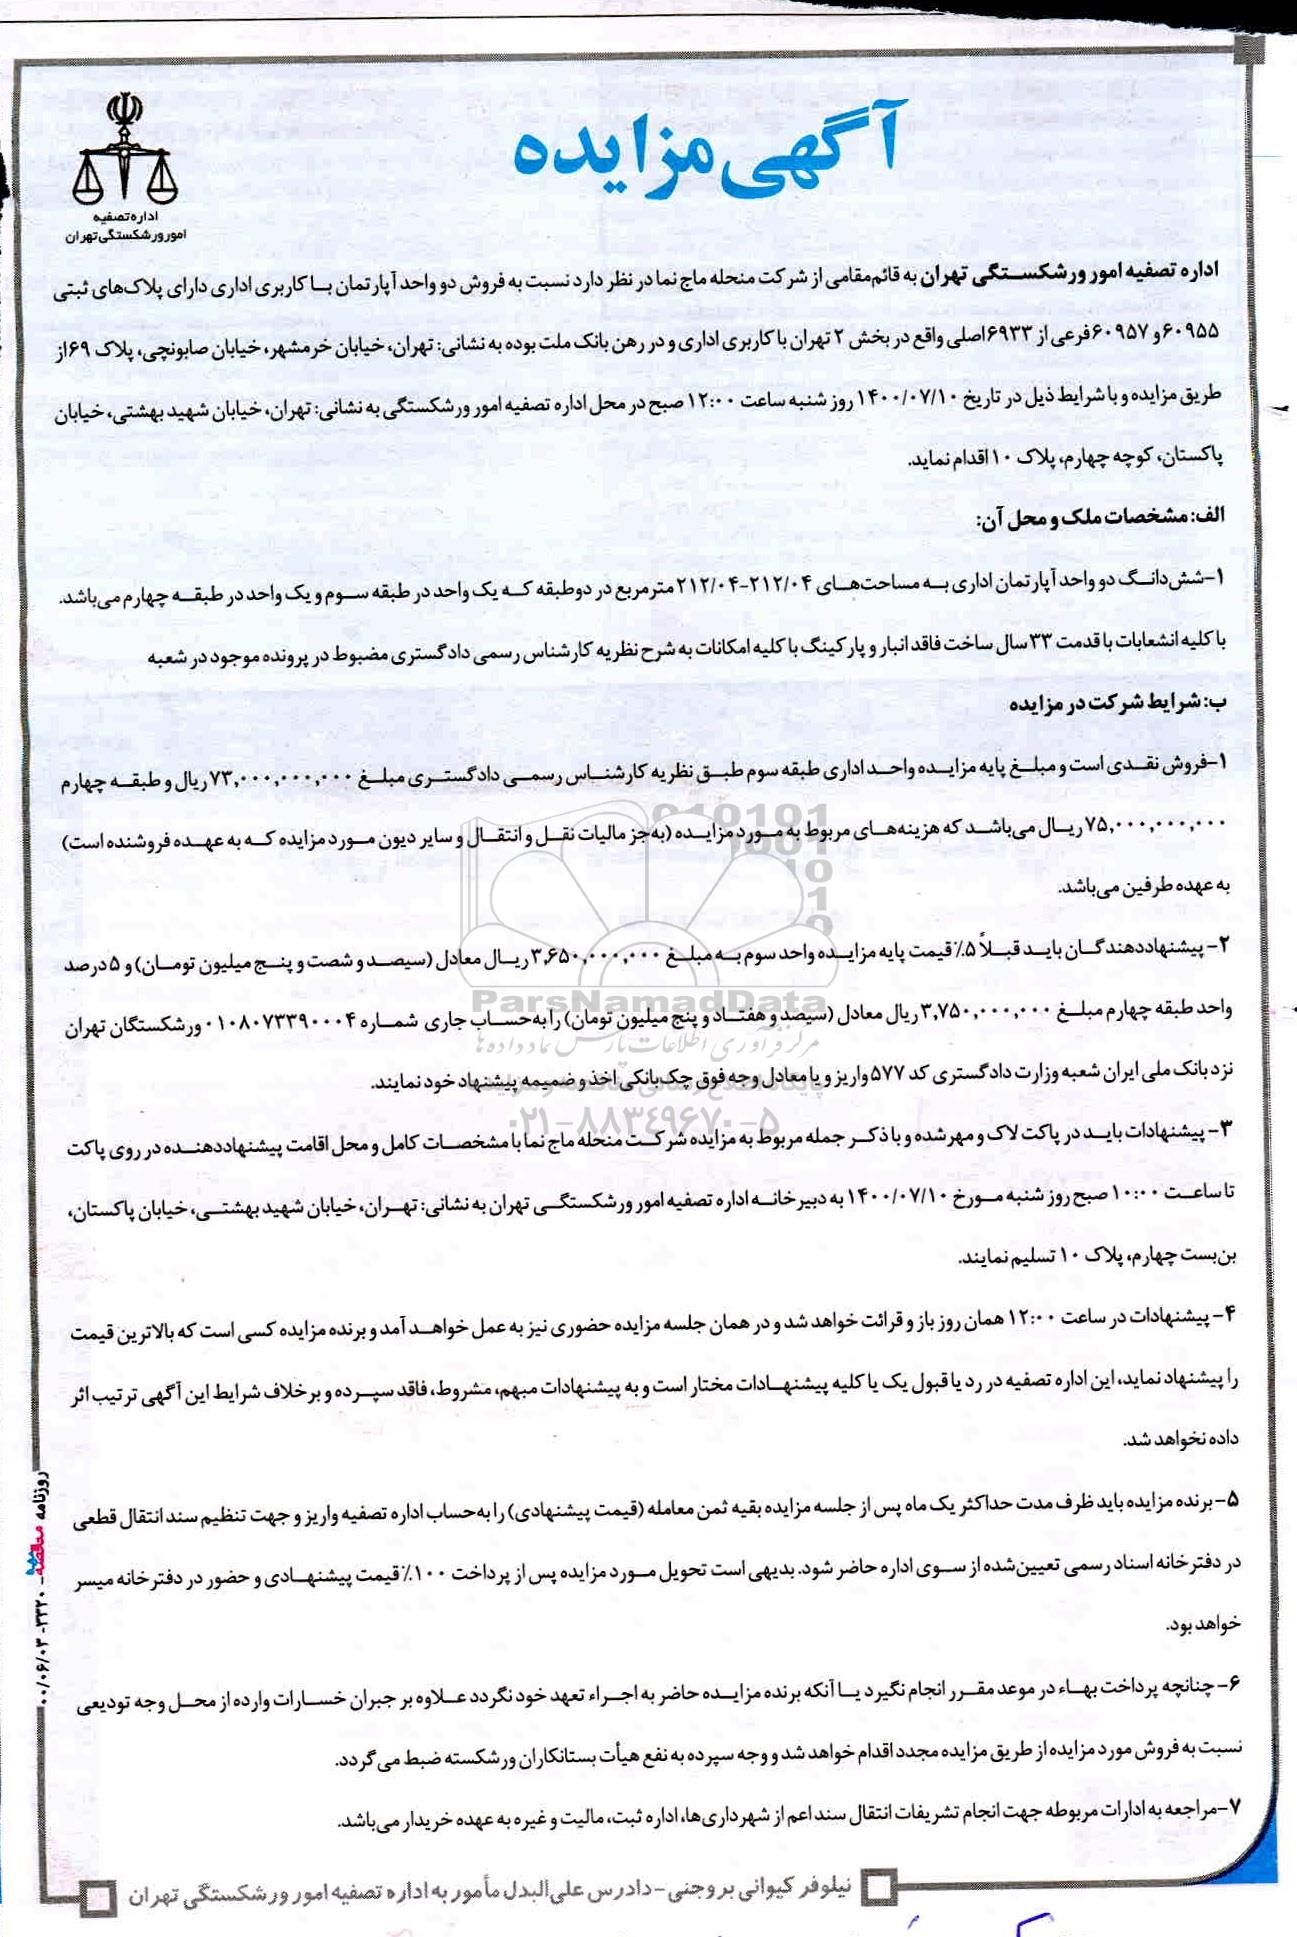 آگهی مزایده
اداره تصفیه
امور ورشکستگی تهران
اداره تصفیه امور ورشکستگی تهران به قائم‌مقامی از شرکت منحله ماج نما در نظر دارد نسبت به فروش دو واحد آپارتمان با کاربری اداری دارای پلاک‌های ثبتی
۶۰۹۵۵ و ۶۰۹۵۷ فرعی از ۶۹۳۳ اصلی واقع در بخش ۲ تهران با کاربری اداری و در رهن بانک ملت بوده به نشانی: تهران، خیابان خرمشهر، خیابان صابونچی، پلاک ۶۹ از
طریق مزایده و با شرایط ذیل در تاریخ ۱۴۰۰/۰۷/۱۰ روز شنبه ساعت ۱۲:۰۰ صبح در محل اداره تصفیه امور ورشکستگی به نشانی: تهران، خیابان شهید بهشتی، خیابان
پاکستان، کوچه چهارم، پلاک ۱۰ اقدام نماید.
الف: مشخصات ملک و محل آن:
۱-شش‌دانگ دو واحد آپارتمان اداری به مساحت‌های ۲۱۲/۰۴-۲۱۲/۰۴ مترمربع در دوطبقه که یک واحد در طبقه سوم و یک واحد در طبقه چهارم می‌باشد.
با کلیه انشعابات با قدمت ۳۳ سال ساخت فاقد انبار و پارکینگ با کلیه امکانات به شرح نظریه کارشناس رسمی دادگستری مضبوط در پرونده موجود در شعبه
ب: شرایط شرکت در مزایده
۱-فروش نقدی است و مبلغ پایه مزایده واحد اداری طبقه سوم طبق نظریه کارشناس رسمی دادگستری مبلغ ۷۳,۰۰۰,۰۰۰,۰۰۰ ریال و طبقه چهارم
۷۵,۰۰۰,۰۰۰,۰۰۰ ریال می‌باشد که هزینه‌های مربوط به مورد مزایده (به‌جز مالیات نقل و انتقال و سایر دیون مورد مزایده که به عهده فروشنده است)
به عهده طرفین می‌باشد.
۲- پیشنهاددهندگان باید قبلاً ۵٪ قیمت پایه مزایده واحد سوم به مبلغ ۳,۶۵۰,۰۰۰,۰۰۰ ریال معادل (سیصد و شصت و پنج میلیون تومان) و ۵ درصد
واحد طبقه چهارم مبلغ ۳,۷۵۰,۰۰۰,۰۰۰ ریال معادل (سیصد و هفتاد و پنج میلیون تومان) را به‌حساب جاری شماره ۰۱۰۸۰۷۳۳۹۰۰۰۴ ورشکستگان تهران
نزد بانک ملی ایران شعبه وزارت دادگستری کد ۵۷۷ واریز و یا معادل وجه فوق چک‌بانکی اخذ و ضمیمه پیشنهاد خود نمایند.
۳- پیشنهادات باید در پاکت لاک و مهر شده و با ذکر جمله مربوط به مزایده شرکت منحله ماج نما با مشخصات کامل و محل اقامت پیشنهاددهنده در روی پاکت
تا ساعت ۱۰:۰۰ صبح روز شنبه مورخ ۱۴۰۰/۰۷/۱۰ به دبیرخانه اداره تصفیه امور ورشکستگی تهران به نشانی: تهران، خیابان شهید بهشتی، خیابان پاکستان،
بن‌بست چهارم، پلاک ۱۰ تسلیم نمایند.
۴- پیشنهادات در ساعت ۱۲:۰۰ همان روز باز و قرائت خواهد شد و در همان جلسه مزایده حضوری نیز به عمل خواهد آمد و برنده مزایده کسی است که بالاترین قیمت
را پیشنهاد نماید، این اداره تصفیه در رد یا قبول یک یا کلیه پیشنهادات مختار است و به پیشنهادات مبهم، مشروط، فاقد سپرده و برخلاف شرایط این آگهی ترتیب اثر
داده نخواهد شد.
۵- برنده مزایده باید ظرف مدت حداکثر یک ماه پس از جلسه مزایده بقیه ثمن معامله (قیمت پیشنهادی) را به‌حساب اداره تصفیه واریز و جهت تنظیم سند انتقال قطعی
در دفترخانه اسناد رسمی تعیین‌شده از سوی اداره حاضر شود. بدیهی است تحویل مورد مزایده پس از پرداخت ۱۰۰٪ قیمت پیشنهادی و حضور در دفترخانه میسر
خواهد بود.
۶- چنانچه پرداخت بهاء در موعد مقرر انجام نگیرد یا آنکه برنده مزایده حاضر به اجراء تعهد خود نگردد علاوه بر جبران خسارات وارده از محل وجه تودیعی
نسبت به فروش مورد مزایده از طریق مزایده مجدد اقدام خواهد شد و وجه سپرده به نفع هیأت بستانکاران ورشکسته ضبط می گردد.
۷-مراجعه به ادارات مربوطه جهت انجام تشریفات انتقال سند اعم از شهرداری‌ها، اداره ثبت، مالیت و غیره به عهده خریدار می‌باشد.
نیلوفر کیوانی بروجنی - دادرس علی‌البدل مأمور به اداره تصفیه امور ورشکستگی تهران
روزنامه مناقصه - ۳۳۲۰ - ۰۰/۰۶/۰۳
ParsNamadData
مرکز فرآوری اطلاعات پارس نماد داده‌ها
۰۲۱-۸۸۳۴۹۶۷۰-۵